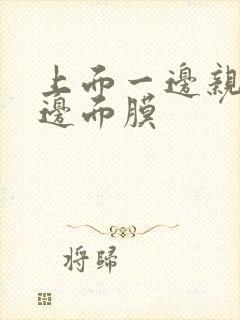 上而一邊親
邊而膜
将歸